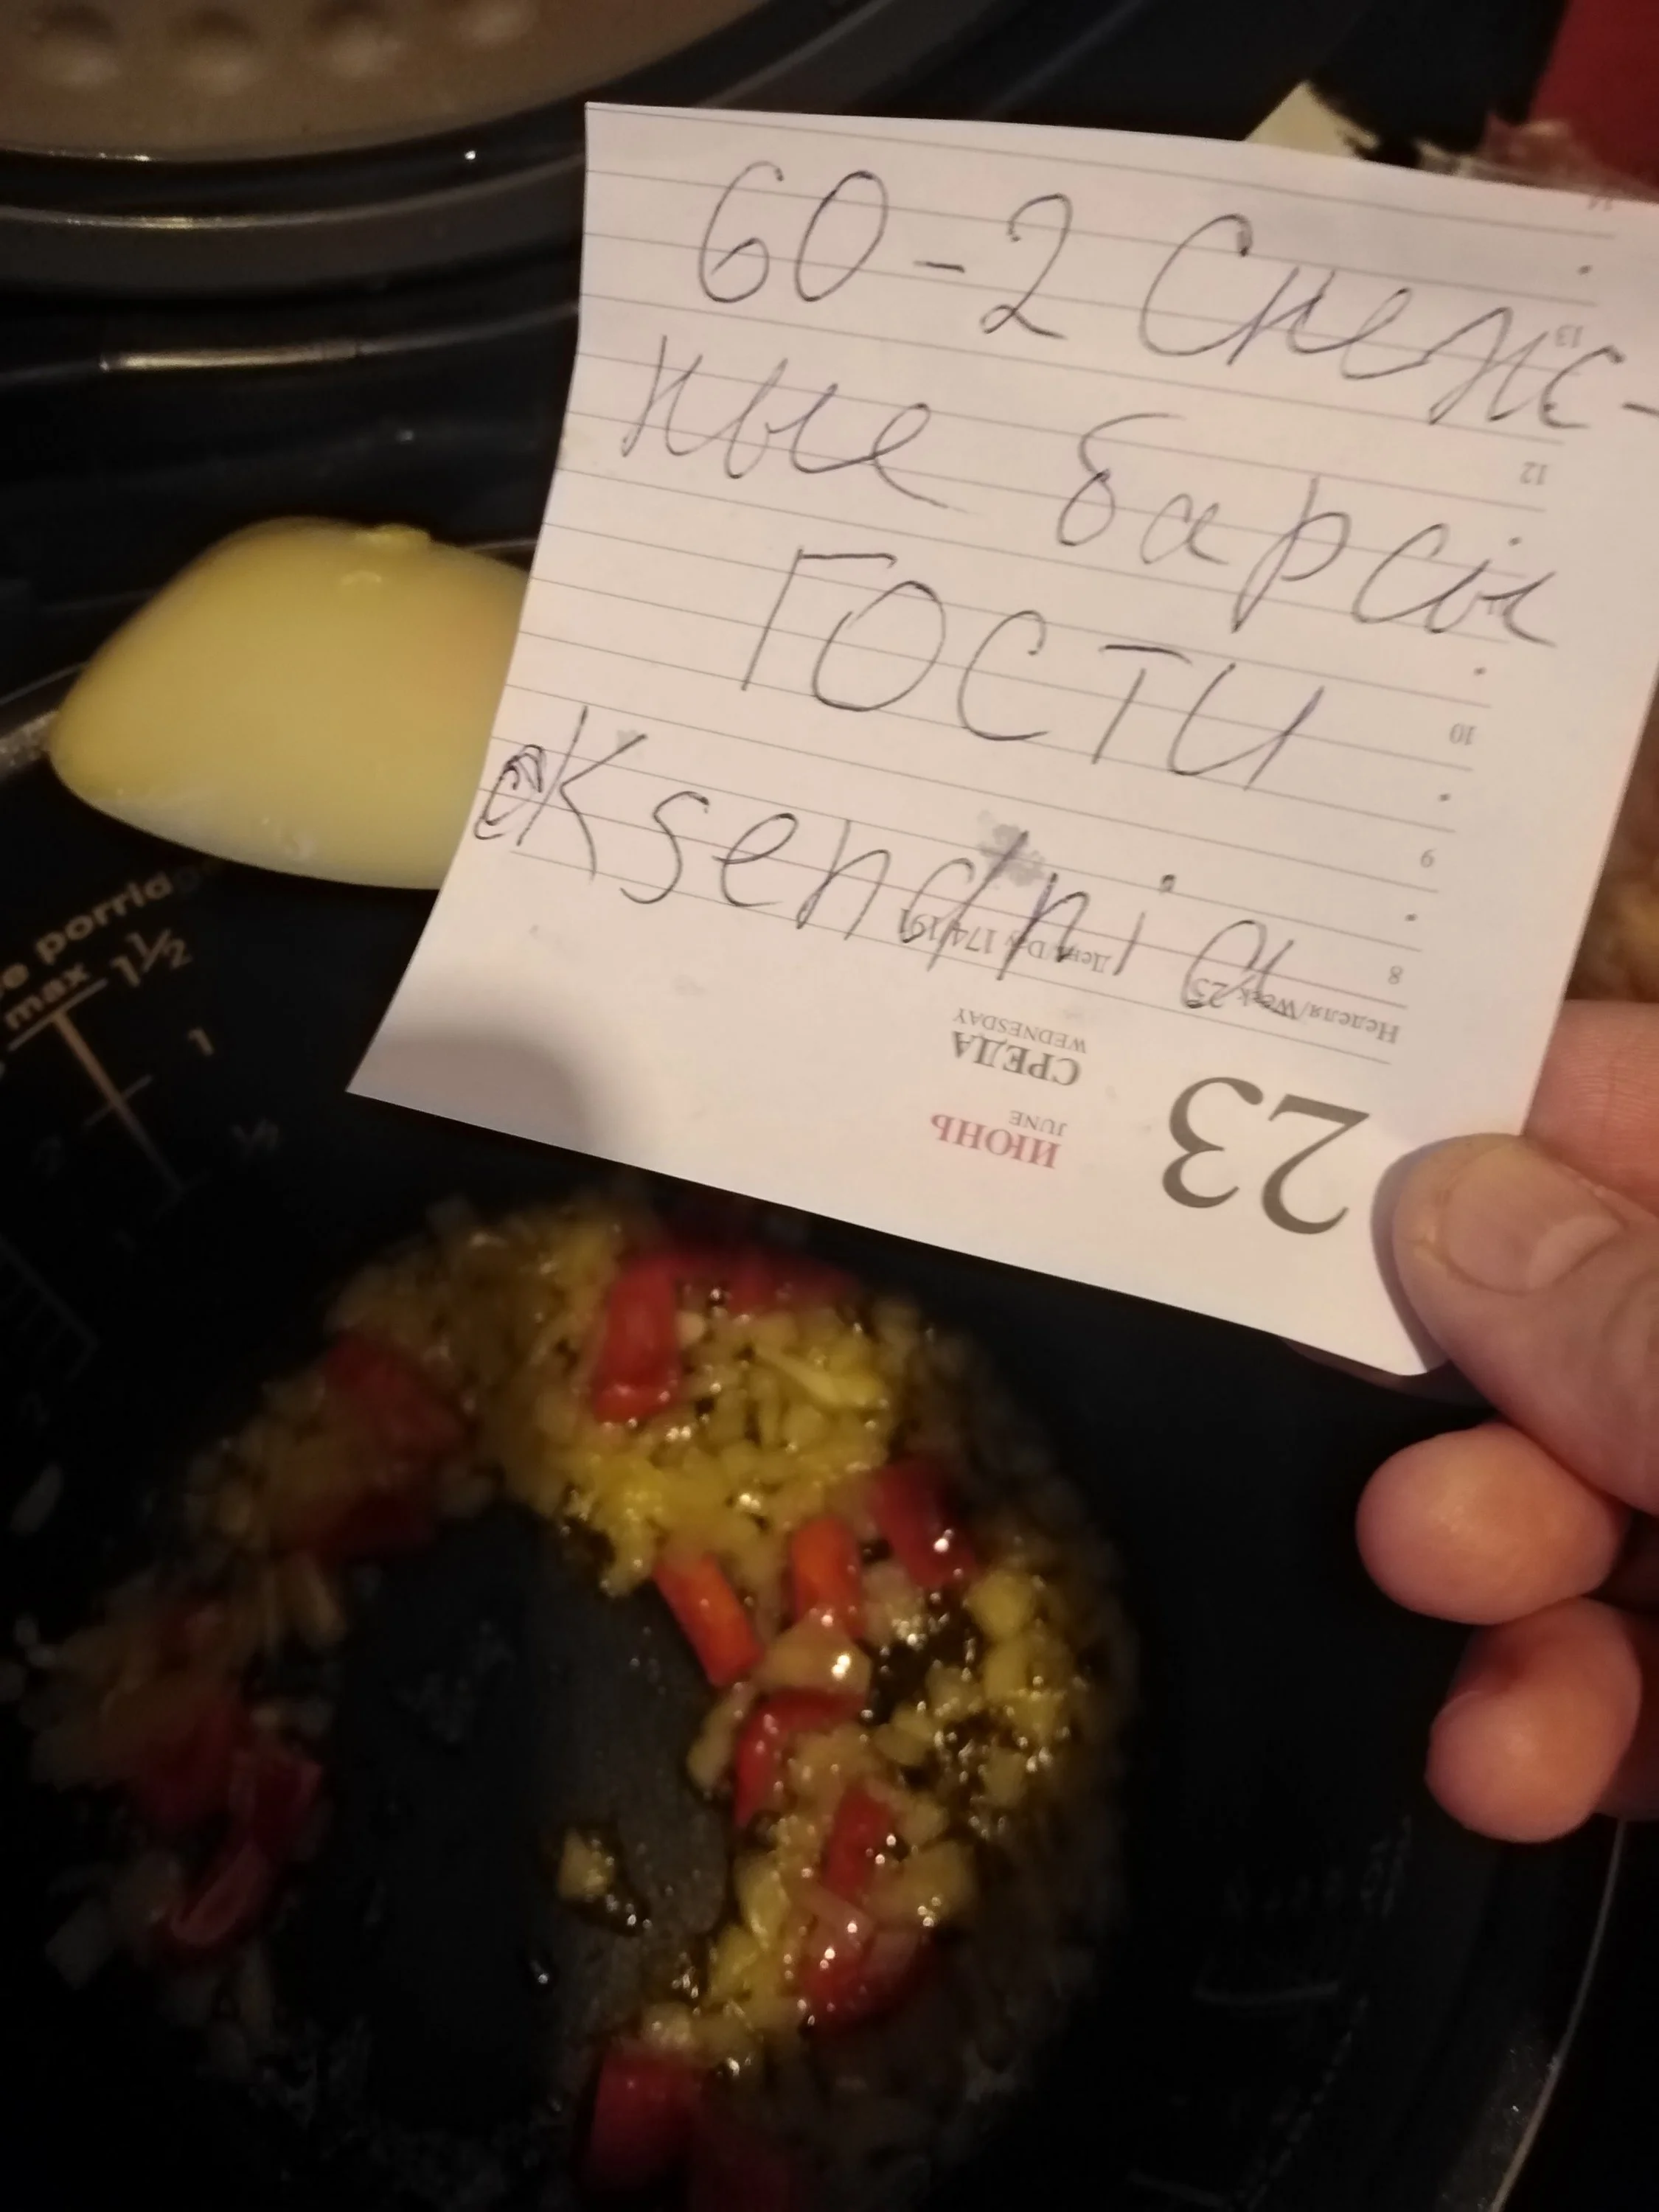 60-2 Снеж-
ные барсы
ГОСТИ
eksendnia
14
13
12
10
9
8
Неделя/Week 25
День/Day 174/191
СРЕДА
WEDNESDAY
ИЮНЬ
JUNE
23
porridge
max
1½
1
½